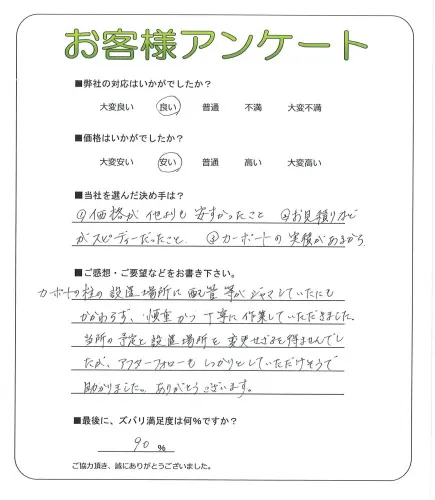 お客様アンケート
■弊社の対応はいかがでしたか?
大変良い 良い 普通 不満 大変不満
■価格はいかがでしたか?
大変安い 安い 普通 高い 大変高い
■当社を選んだ決め手は?
①価格が他よりも安すかったこと ②お見積りなど
がスピーディーだったこと. ③カーポートの実積があるから
■ご感想・ご要望などをお書き下さい。
カーポートの柱の設置場所に配管等がジャマしていたにも
かかわらず、慎重かつ丁寧に作業していただきました。
当所の予定と設置場所を変更せざるを得ませんでし
たが、アフターフォローもしっかりとしていただけそうで
助かりました。ありがとうございます。
■最後に、ズバリ満足度は何%ですか?
90 %
ご協力頂き、誠にありがとうございました。